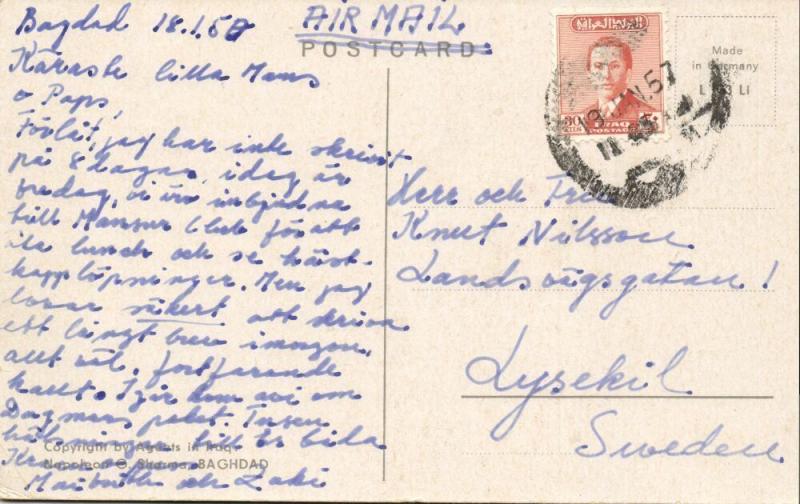 Bagdad 18.1.57
AIR MAIL
POSTCARD
Made
in Germany
L LI
IRAQ
POSTAGE
JAN. 57
Käraste lilla Mams
o Paps,
Förlåt, jag har inte skrivit
på 8 dagar, idag är
fredag, vi är inbjudna
till Mansur Club för att
äta lunch och se häst-
kapplöpningar. Men jag
lovar säkert att skriva
ett långt brev imorgon,
allt väl, fortfarande
kallt. Igår kom avi om
Dagmars paket. Tusen
till Er båda
Kram
och Zaki
Herr och Fru
Knut Nilsson
Landsvägsgatan 1
Lysekil
Sweden
Copyright by Agents in Iraq
Napoleon G. Sharma, BAGHDAD